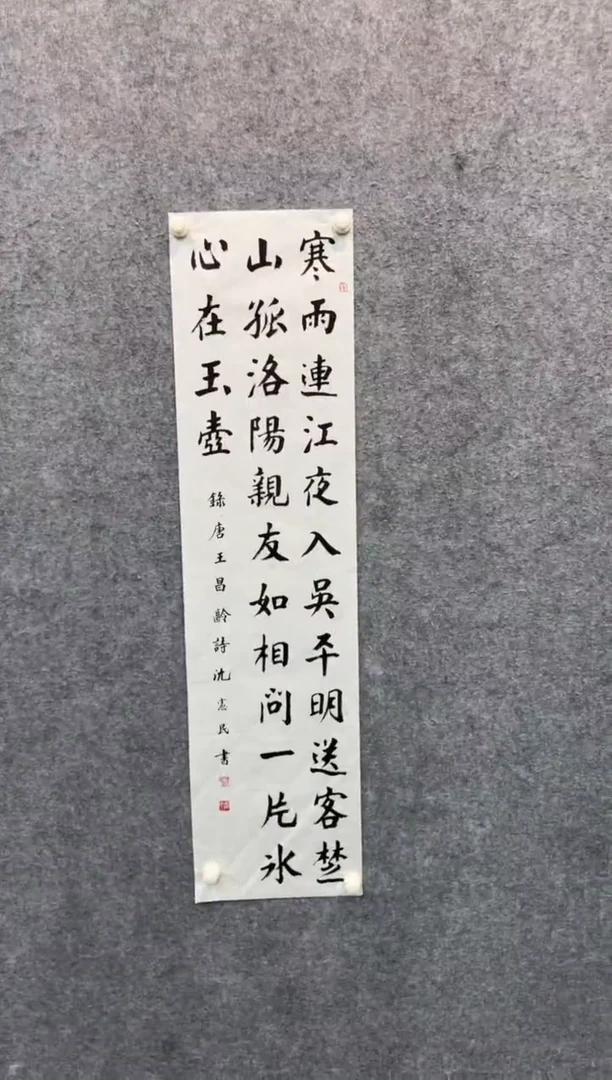 寒雨連江夜入吳平明送客楚
山孤洛陽親友如相問一片氷
心在玉壺
錄唐王昌齡詩沈憲民書